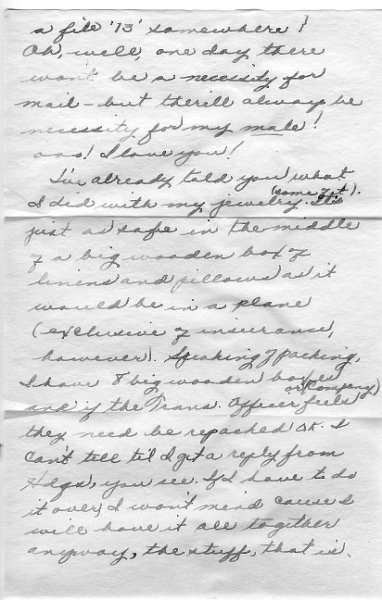 a file '13' somewhere!
Oh, well, one day there
won't be a necessity for
mail - but there'll always be
necessity for my male!
ooo! I love you!
I've already told you what
I did with my jewelry (some of it). It's
just as safe in the middle
of a big wooden box of
linens and pillows as it
would be in a plane
(exclusive of insurance,
however). Speaking of packing,
I have 8 big wooden boxes
and if the Trans. Officer (or Company) feels
they need be repacked OK. I
can't tell til I get a reply from
Hdqs, you see. If I have to do
it over, I won't mind cause I
will have it all together
anyway, the stuff, that is.